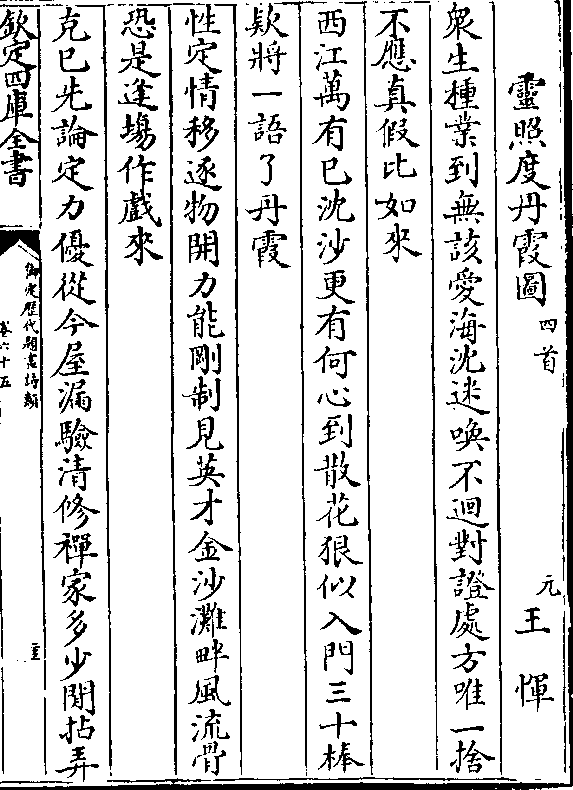 靈照度丹霞圖 四首 元 王惲
衆生種業到無該愛海沈迷喚不迴對證處方唯一捨
不應真假比如來
西江萬有已沈沙更有何心到散花狠似入門三十棒
欵將一語了丹霞
性定情移逐物開力能剛制見英才金沙灘畔風流骨
恐是逢塲作戲來
克已先論定力優從今屋漏驗清修禪家多少閒拈弄
欽定四庫全書
御定歴代題畫詩類
卷六十五